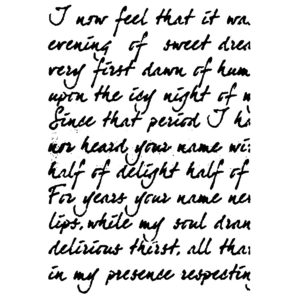 I now feel that it was
evening of sweet drea
very first dawn of hum
upon the icy night of m
Since that period I ha
nor heard your name wi
half of delight half of
For years your name nev
lips, while my soul dran
delirious thirst, all that
in my presence respecting